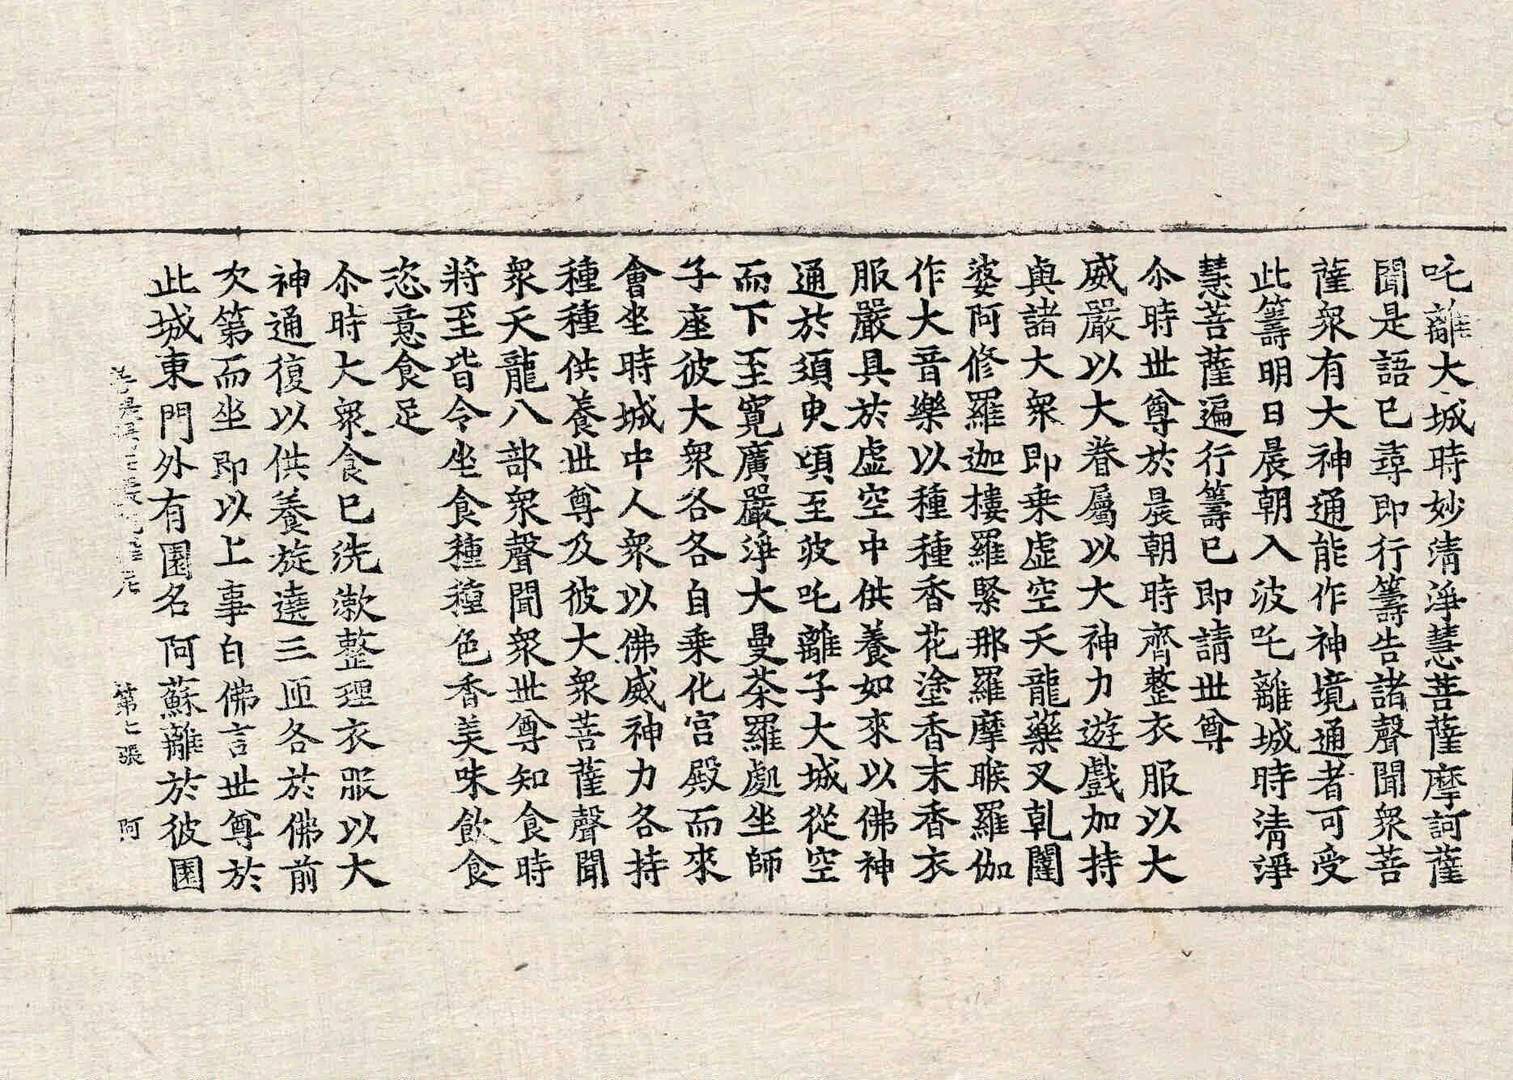 吒離大城時妙清淨慧菩薩摩訶薩
聞是語已尋即行籌告諸聲聞衆菩
薩衆有大神通能作神境通者可受
此籌明日晨朝入波吒離城時清淨
慧菩薩遍行籌已即請世尊
尒時世尊於晨朝時齊整衣服以大
威嚴以大眷屬以大神力遊戲加持
與諸大衆即乗虛空天龍藥叉乹闥
婆阿修羅迦樓羅緊那羅摩睺羅伽
作大音樂以種種香花塗香末香衣
服嚴具於虛空中供養如來以佛神
通於須臾頃至波吒離子大城從空
而下至寬廣嚴淨大曼荼羅處坐師
子座彼大衆各各自乗化宮殿而來
會坐時城中人衆以佛威神力各持
種種供養世尊及彼大衆菩薩聲聞
衆天龍八部衆聲聞衆世尊知食時
將至皆令坐食種種色香美味飲食
恣意食足
尒時大衆食已洗漱整理衣服以大
神通復以供養旋遶三匝各於佛前
次第而坐即以上事白佛言世尊於
此城東門外有園名阿蘇離於彼園
第七張 阿